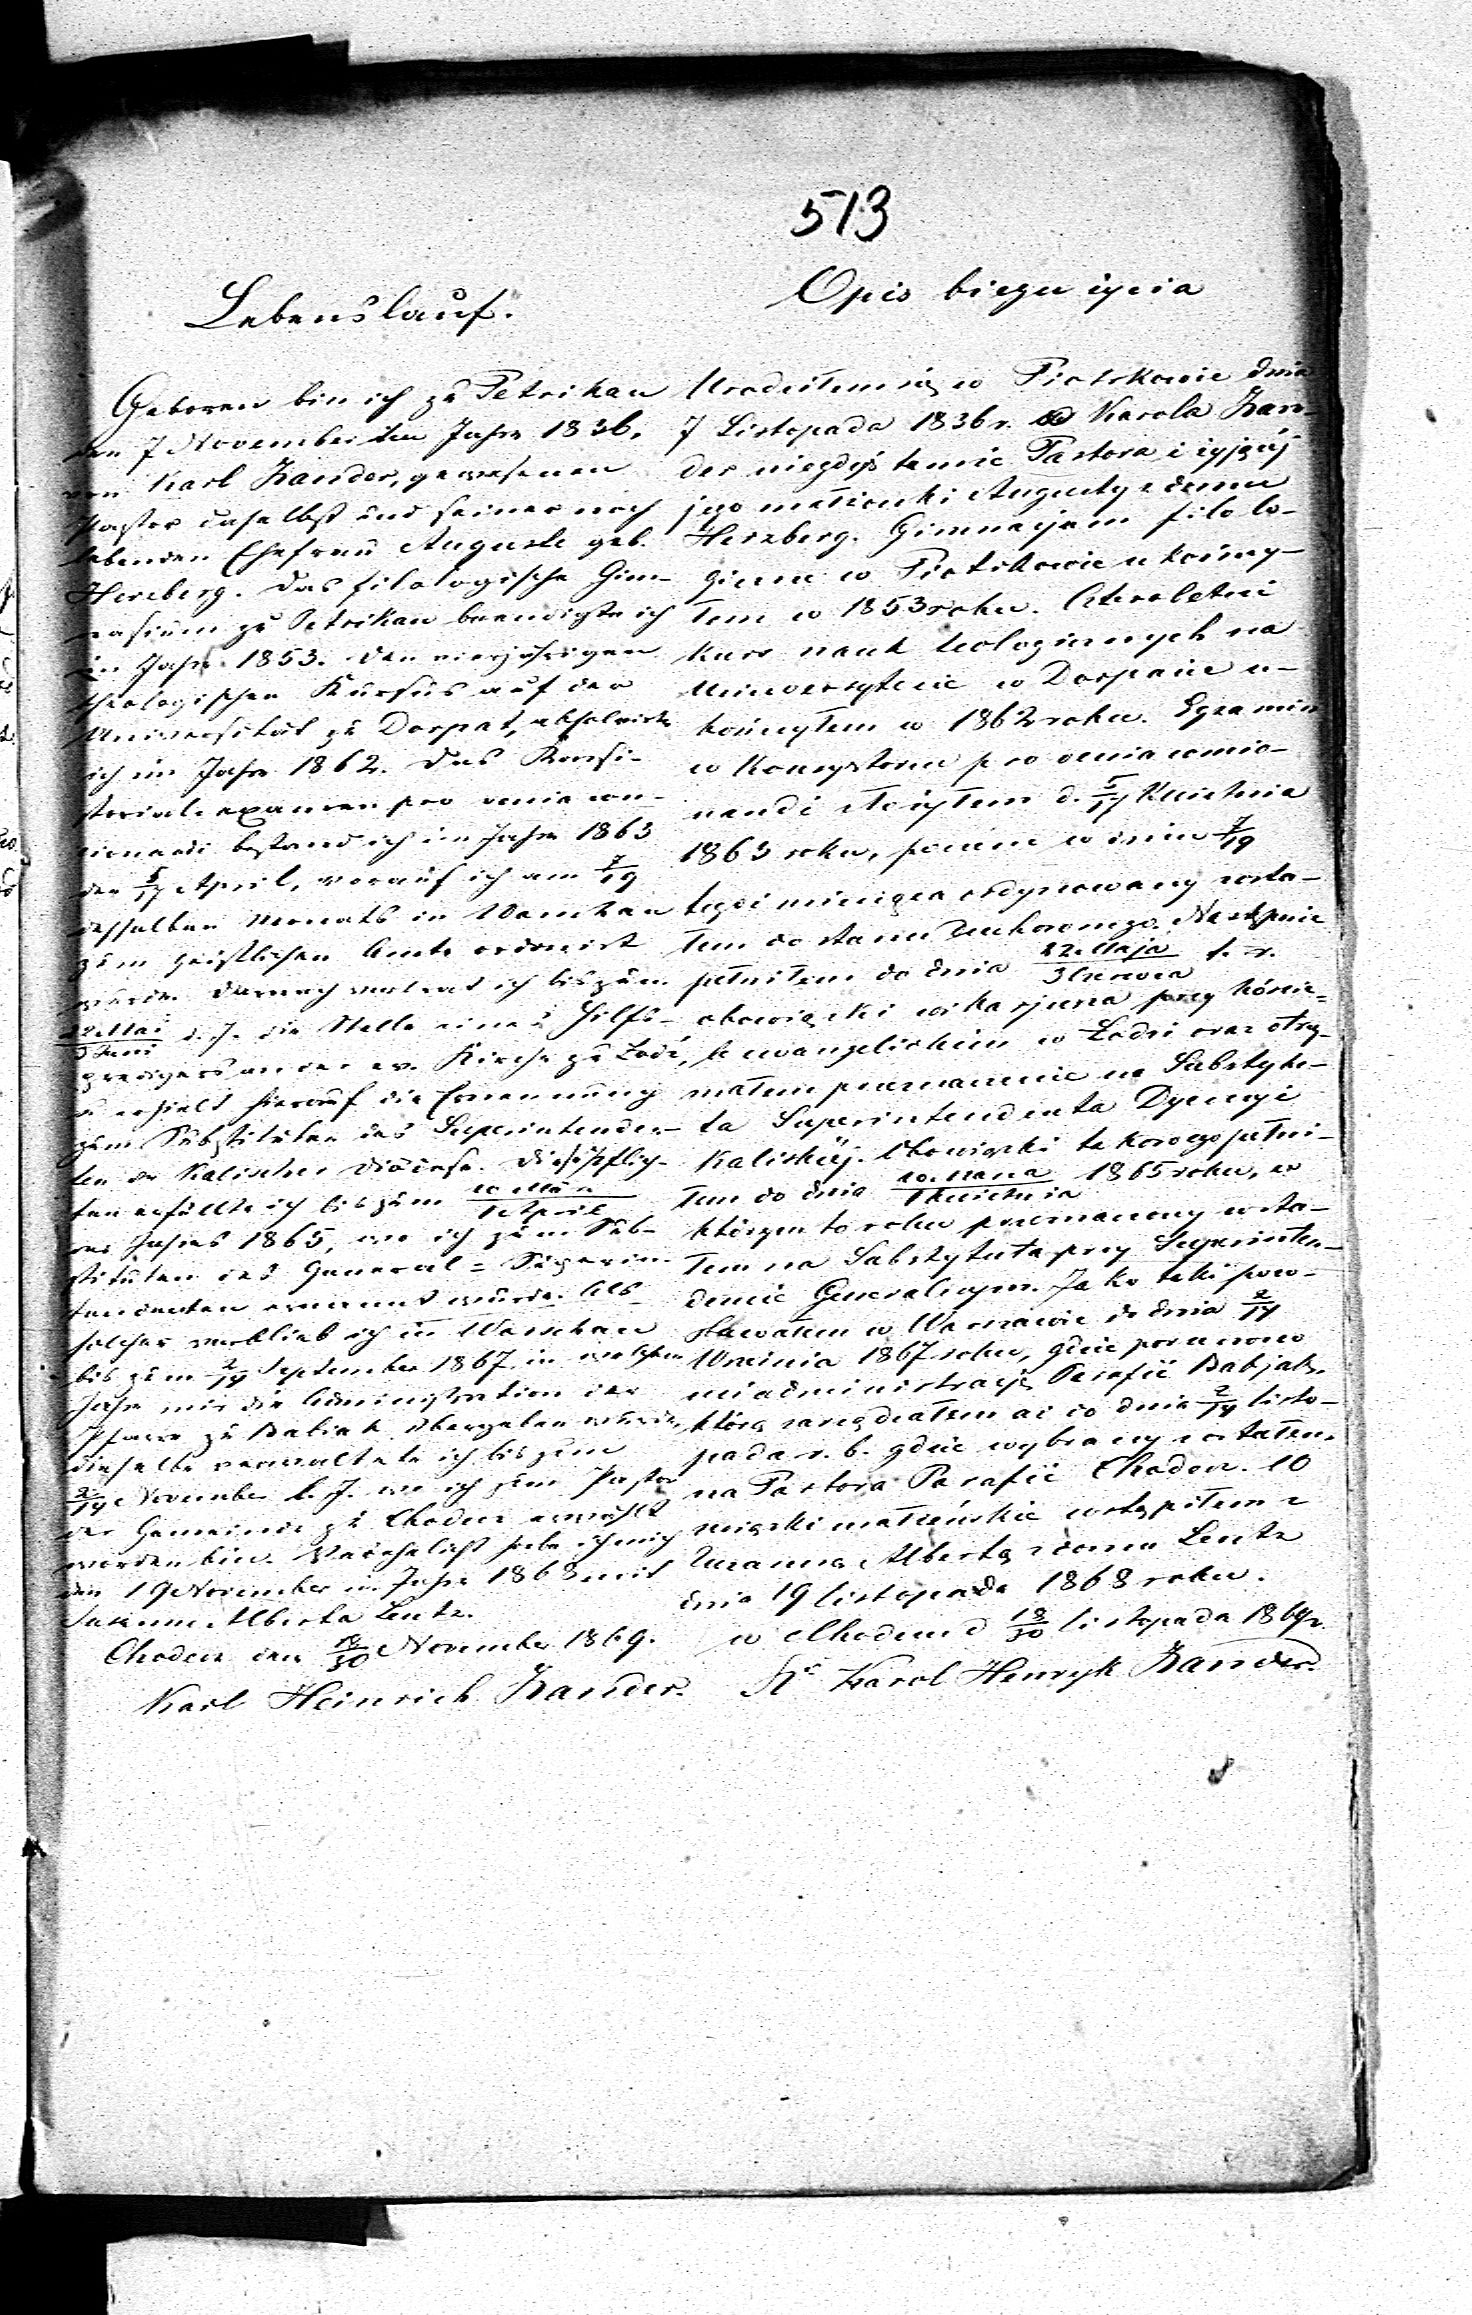 513
Lebenslauf.
Geboren bin ich zu Petrikau
den 7 November im Jahre 1836.
von Karl Zander, gewesenen
Pastor daselbst und seiner noch
lebenden Ehefrau Auguste geb.
Herzberg. Das filologische Gim-
nasium zu Petrikau beendigte ich
im Jahre 1853. Den vierjährigen
theologischen Kursus auf der
Universität zu Dorpat, absolvirte
ich im Jahre 1862. Das Konsi-
storialexamen pro venia con-
cionandi bestand ich im Jahre 1863
den 5/17 April, worauf ich am 7/19
desselben Monats in Warschau
zum geistlichen Amte ordinirt
wurde. Darnach vertrat ich bis zum
22 Mai/3 Juni d. J. die Stelle eines Hilfs-
predigers an der ev. Kirche zu Lodź,
u erhielt hierauf die Ernennung
zum Substituten des Superintenden-
ten der Kalischer Diöcese. Diese Pflich-
ten erfüllte ich bis zum 20 März/1 April
des Jahres 1865, wo ich zum Sub-
stituten des General-Superin-
tendenten ernannt wurde. Als
solcher verblieb ich in Warschau
bis zum 2/14 September 1867 in welchem
Jahre mir die Administration der
Pfarre zu Babiak übergeben wurde,
dieselbe verwaltete ich bis zum
2/14 November l. J. wo ich zum Pastor
der Gemeinde zu Chodecz erwählt
worden bin. Verehelicht habe ich mich
den 19 November im Jahre 1868 mit
Susanne Alberta Lentz.
Chodecz den 18/30 November 1869.
Karl Heinrich Zander.
Opis biegu życia
Urodziłem się w Piotrkowie dnia
7 Listopada 1836 r. od Karola Zan-
der niegdyś tamże Pastora i żyjącéj
jego małżonki Augusty z domu
Herzberg. Gimnazjum filolo-
giczne w Piotrkowie ukończy-
łem w 1853 roku. Czteroletni
kurs nauk teologicznych na
Uniwersytecie w Dorpacie u-
kończyłem w 1862 roku. Egzamin
w Konsystorzu pro venia concio-
nandi złożyłem d. 5/17 Kwietnia
1863 roku, poczem w dniu 7/19
tegoż miesiąca ordynowany zosta-
łem do stanu Duchownego. Następnie
pełniłem do dnia 22 Maja/3 Czerwca t. r.
obowiązki wikarjusza przy koście-
le ewangelickim w Łodzi oraz otrzy-
małem przeznaczenie na Substytu-
ta Superintendenta Dyecezji
Kaliskiéj. Obowiązki takowego pełni-
łem do dnia 20 Marca/1 Kwietnia 1865 roku, w
którym to roku przeznaczony zosta-
łem na Substytuta przy Superinten-
dencie Generalnym. Jako taki pozo-
stawałem w Warszawie do dnia 2/14
Września 1867 roku, gdzie poruczono
mi administracją Parafii Babjak,
którą zarządzałem aż do dnia 2/14 listo-
pada r. b. gdzie wybrany zostałem
na Pastora Parafii Chodecz. W
związki małżeńskie wstąpiłem z
Zuzanną Albertą z domu Lentz
dnia 19 listopada 1868 roku.
w Chodczu d 18/30 listopada 1869 r.
Ks Karol Henryk Zander.